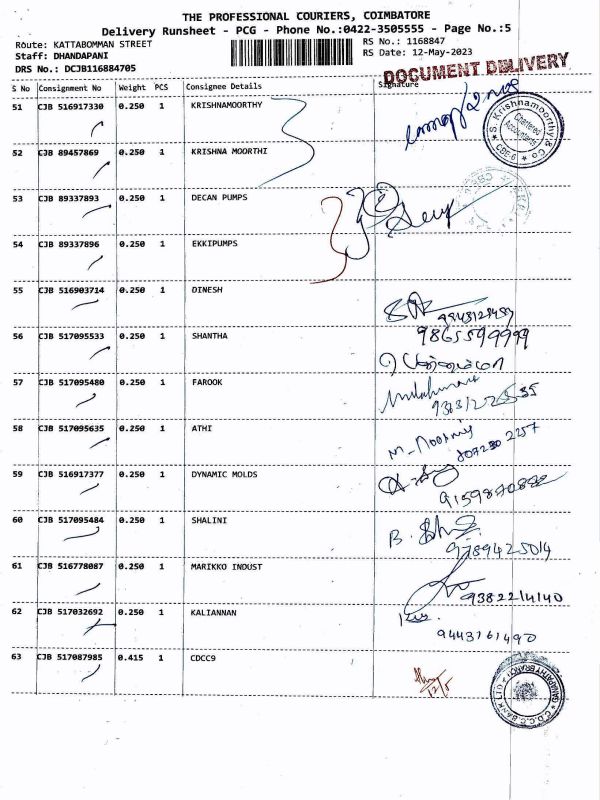 THE PROFESSIONAL COURIERS, COIMBATORE
Delivery Runsheet - PCG - Phone No.:0422-3505555 - Page No.:5
Route: KATTABOMMAN STREET
RS No.: 1168847
Staff: DHANDAPANI
RS Date: 12-May-2023
DRS No.: DCJB116884705
DOCUMENT DELIVERY
S No Consignment No Weight PCS Consignee Details Signature
51 CJB 516917330 0.250 1 KRISHNAMOORTHY
S. Krishnamoorthy & Co
Chartered
Accountants
CBE-6
52 CJB 89457869 0.250 1 KRISHNA MOORTHI
53 CJB 89337893 0.250 1 DECAN PUMPS
54 CJB 89337896 0.250 1 EKKIPUMPS
55 CJB 516903714 0.250 1 DINESH
56 CJB 517095533 0.250 1 SHANTHA
9865599999
57 CJB 517095480 0.250 1 FAROOK
58 CJB 517095635 0.250 1 ATHI
59 CJB 516917377 0.250 1 DYNAMIC MOLDS
60 CJB 517095484 0.250 1 SHALINI
9789425014
61 CJB 516778087 0.250 1 MARIKKO INDUST
9382214140
62 CJB 517032692 0.250 1 KALIANNAN
9443161490
63 CJB 517087985 0.415 1 CDCC9
12/5